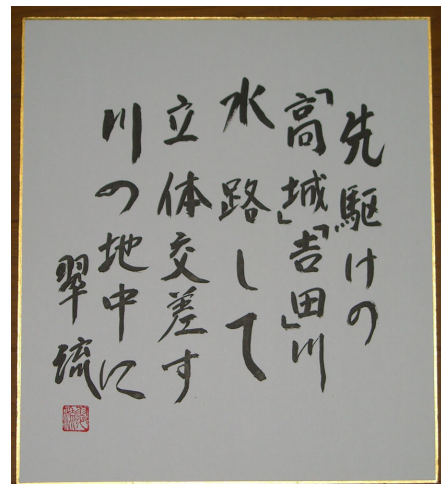 先駆けの
「高城」「吉田」川
水路して
立体交差す
川の地中に
翠流